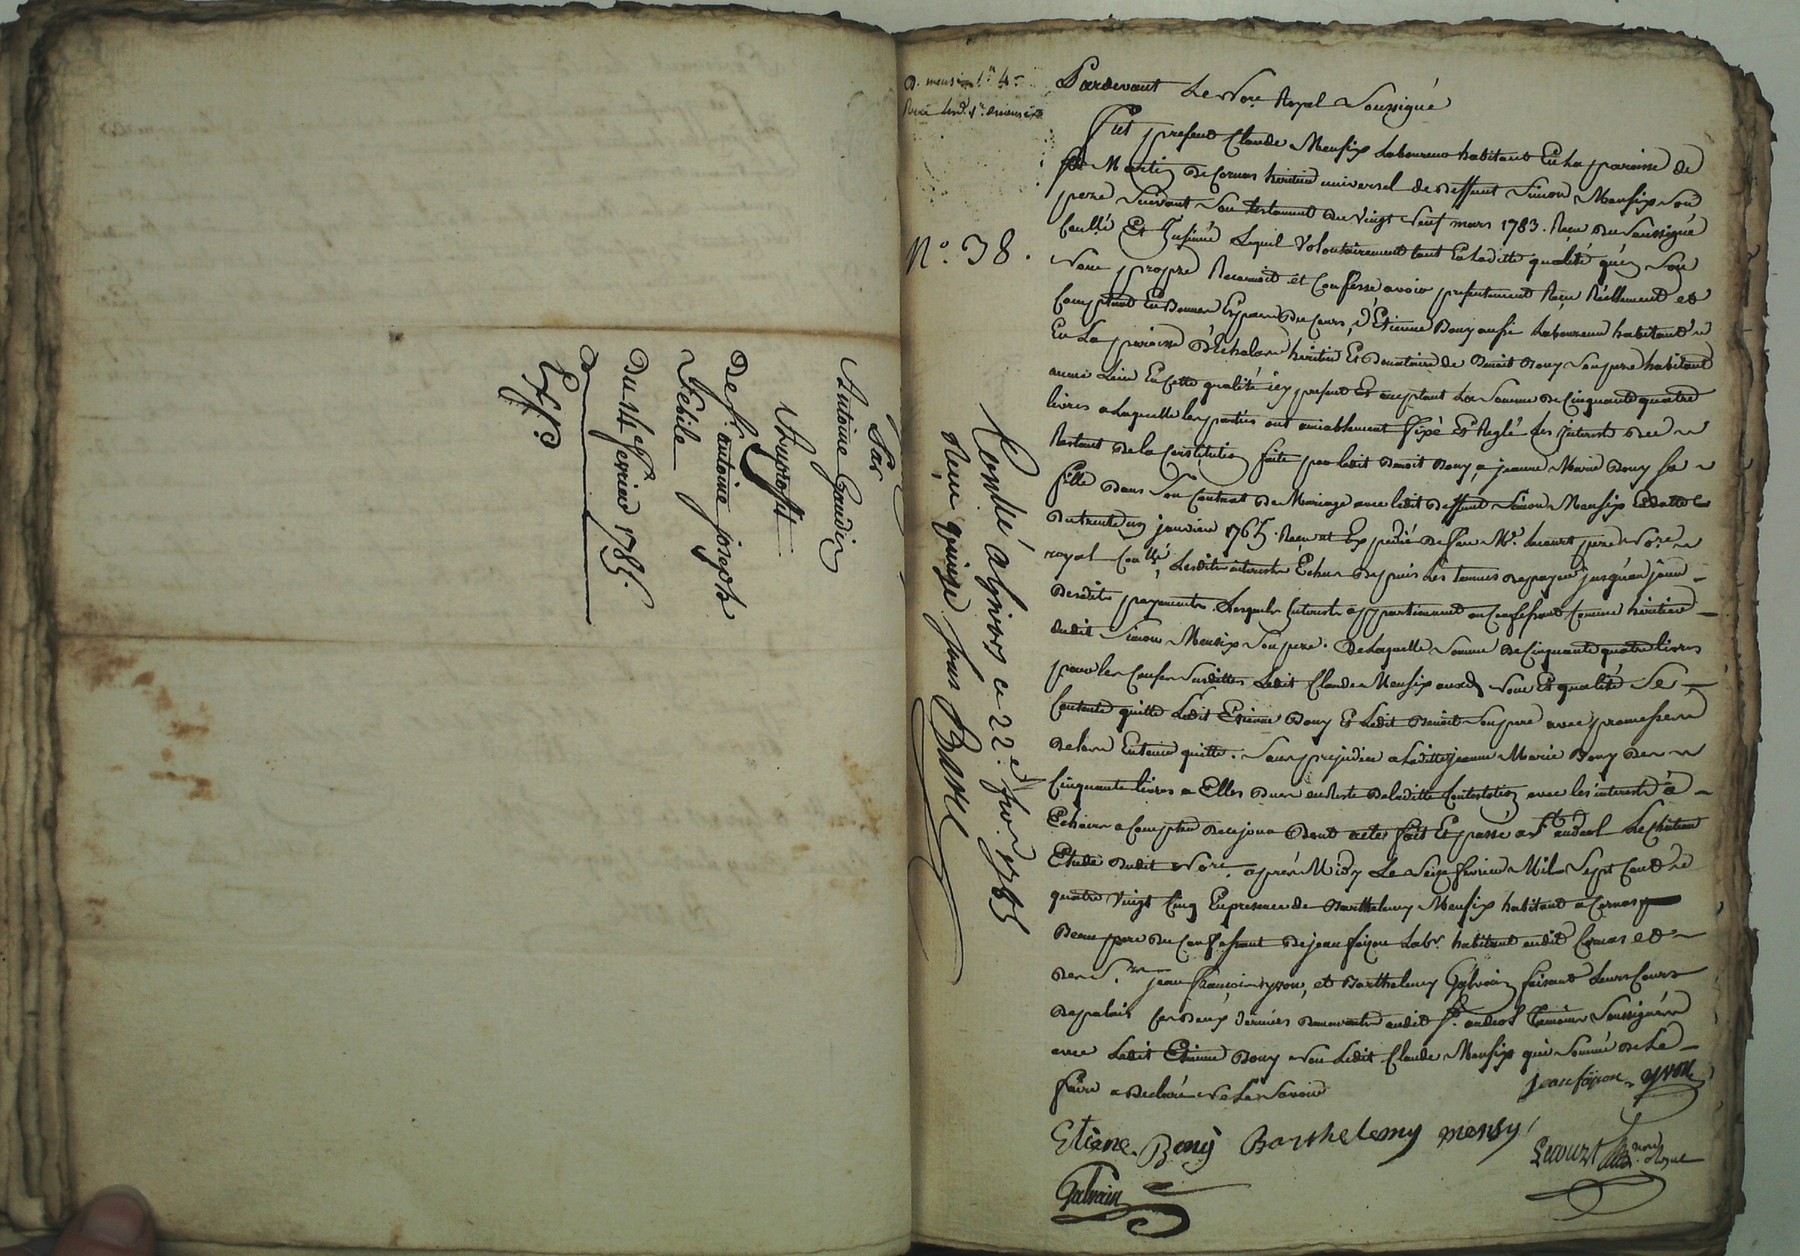 Par
Antoine Gaudin
Au proffit
De Sr. antoine joseph
Sebile
Du 14e fevrier 1785.
Expé
N°. 38.
Controlé a Givors ce 22e. fvr. 1785
Reçu quinze sous
Pardevant Le Nore. Royal Soussigné
fut present Claude Mensix Laboureur habitant En La paroisse de
St Martin De Cornas heritier universel de deffunt Simon Mensix son
pere Suivant Son testament du vingt neuf mars 1783. Reçu du Soussigné
Conllé Et Insinué Lequel Volontairement tant En Laditte qualité qu'en Son
Nom propre Reconnoit et Confesse avoir presentement Reçu Réellement et
Comptant En Bonnes Especes De Cours, d'Etienne Bony aussi Laboureur habitant
En La paroisse D'Echalas heritier Et Donataire de Benoit Bony Son pere habitant
au mê Lieu En Cette qualité icy present Et acceptant La Somme de Cinquante quatre
livres a Laquelle les parties ont amiablement fixé Et Reglé Les Interets du
Restant de la Constitution faite par ledit Benoit Bony a jeanne Marie Bony sa
fille Dans Son Contrat de Mariage avec ledit Deffunt Simon Mensix En datte
du trente un janvier 1765. Reçu et Expedié de feu Me. Lecourt pere Nore.
royal Conllé, Lesdits interets Echus Depuis Les termes de payer jusqu'au jour
Desdits payements. Lesquels Interets appartiennent au Confessant Comme heritier
dudit Simon Mensix Son pere. De Laquelle Somme de Cinquante quatre livres
pour les Causes Susdittes Ledit Claude Mensix auxd Nom Et qualité Se
Contente quitte Ledit Etienne Bony Et Ledit Benoit Son pere avec promesse
de les En tenir quitte. Sans prejudice a Laditte jeanne Marie Bony des
Cinquante livres a Elles Dues en Reste de laditte Constitution avec les interets a
Echoir a Compter de ce jour Dont acte fait Et passé a St andeol Le chateau
Etude dudit Nore. après Midy Le Seize fevrier Mil Sept Cent
quatre Vingt Cinq En presence de Barthelemy Mensix habitant a Cornas
Beau pere du Confessant De jean faijon Labr. habitant audit Cornas et
des Srs. jean francois yvon, et Barthelemy Galvain faisant Leurs Cours
De palais Ces Deux derniers Demeurants audit St. andeol temoins Soussignés
avec Ledit Etienne Bony Non Ledit Claude Mensix qui Sommé de Le
faire a Declaré Ne Le Savoir
jean faijon yvon
Etiene Bony Barthelemy mensy
Lecourt nore Royal
Galvain